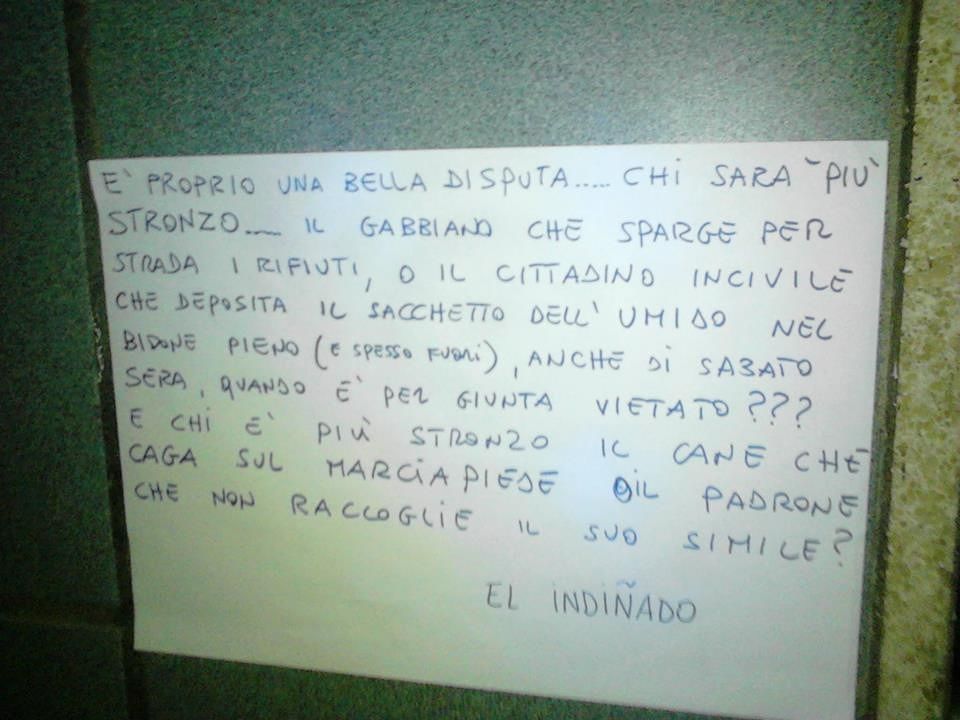 E' PROPRIO UNA BELLA DISPUTA..... CHI SARA' PIU'
STRONZO.... IL GABBIANO CHE SPARGE PER
STRADA I RIFIUTI, O IL CITTADINO INCIVILE
CHE DEPOSITA IL SACCHETTO DELL'UMIDO NEL
BIDONE PIENO (E SPESSO FUORI), ANCHE DI SABATO
SERA, QUANDO E' PER GIUNTA VIETATO???
E CHI E' PIÙ STRONZO IL CANE CHE
CAGA SUL MARCIAPIEDE O IL PADRONE
CHE NON RACCOGLIE IL SUO SIMILE?
EL INDIÑADO